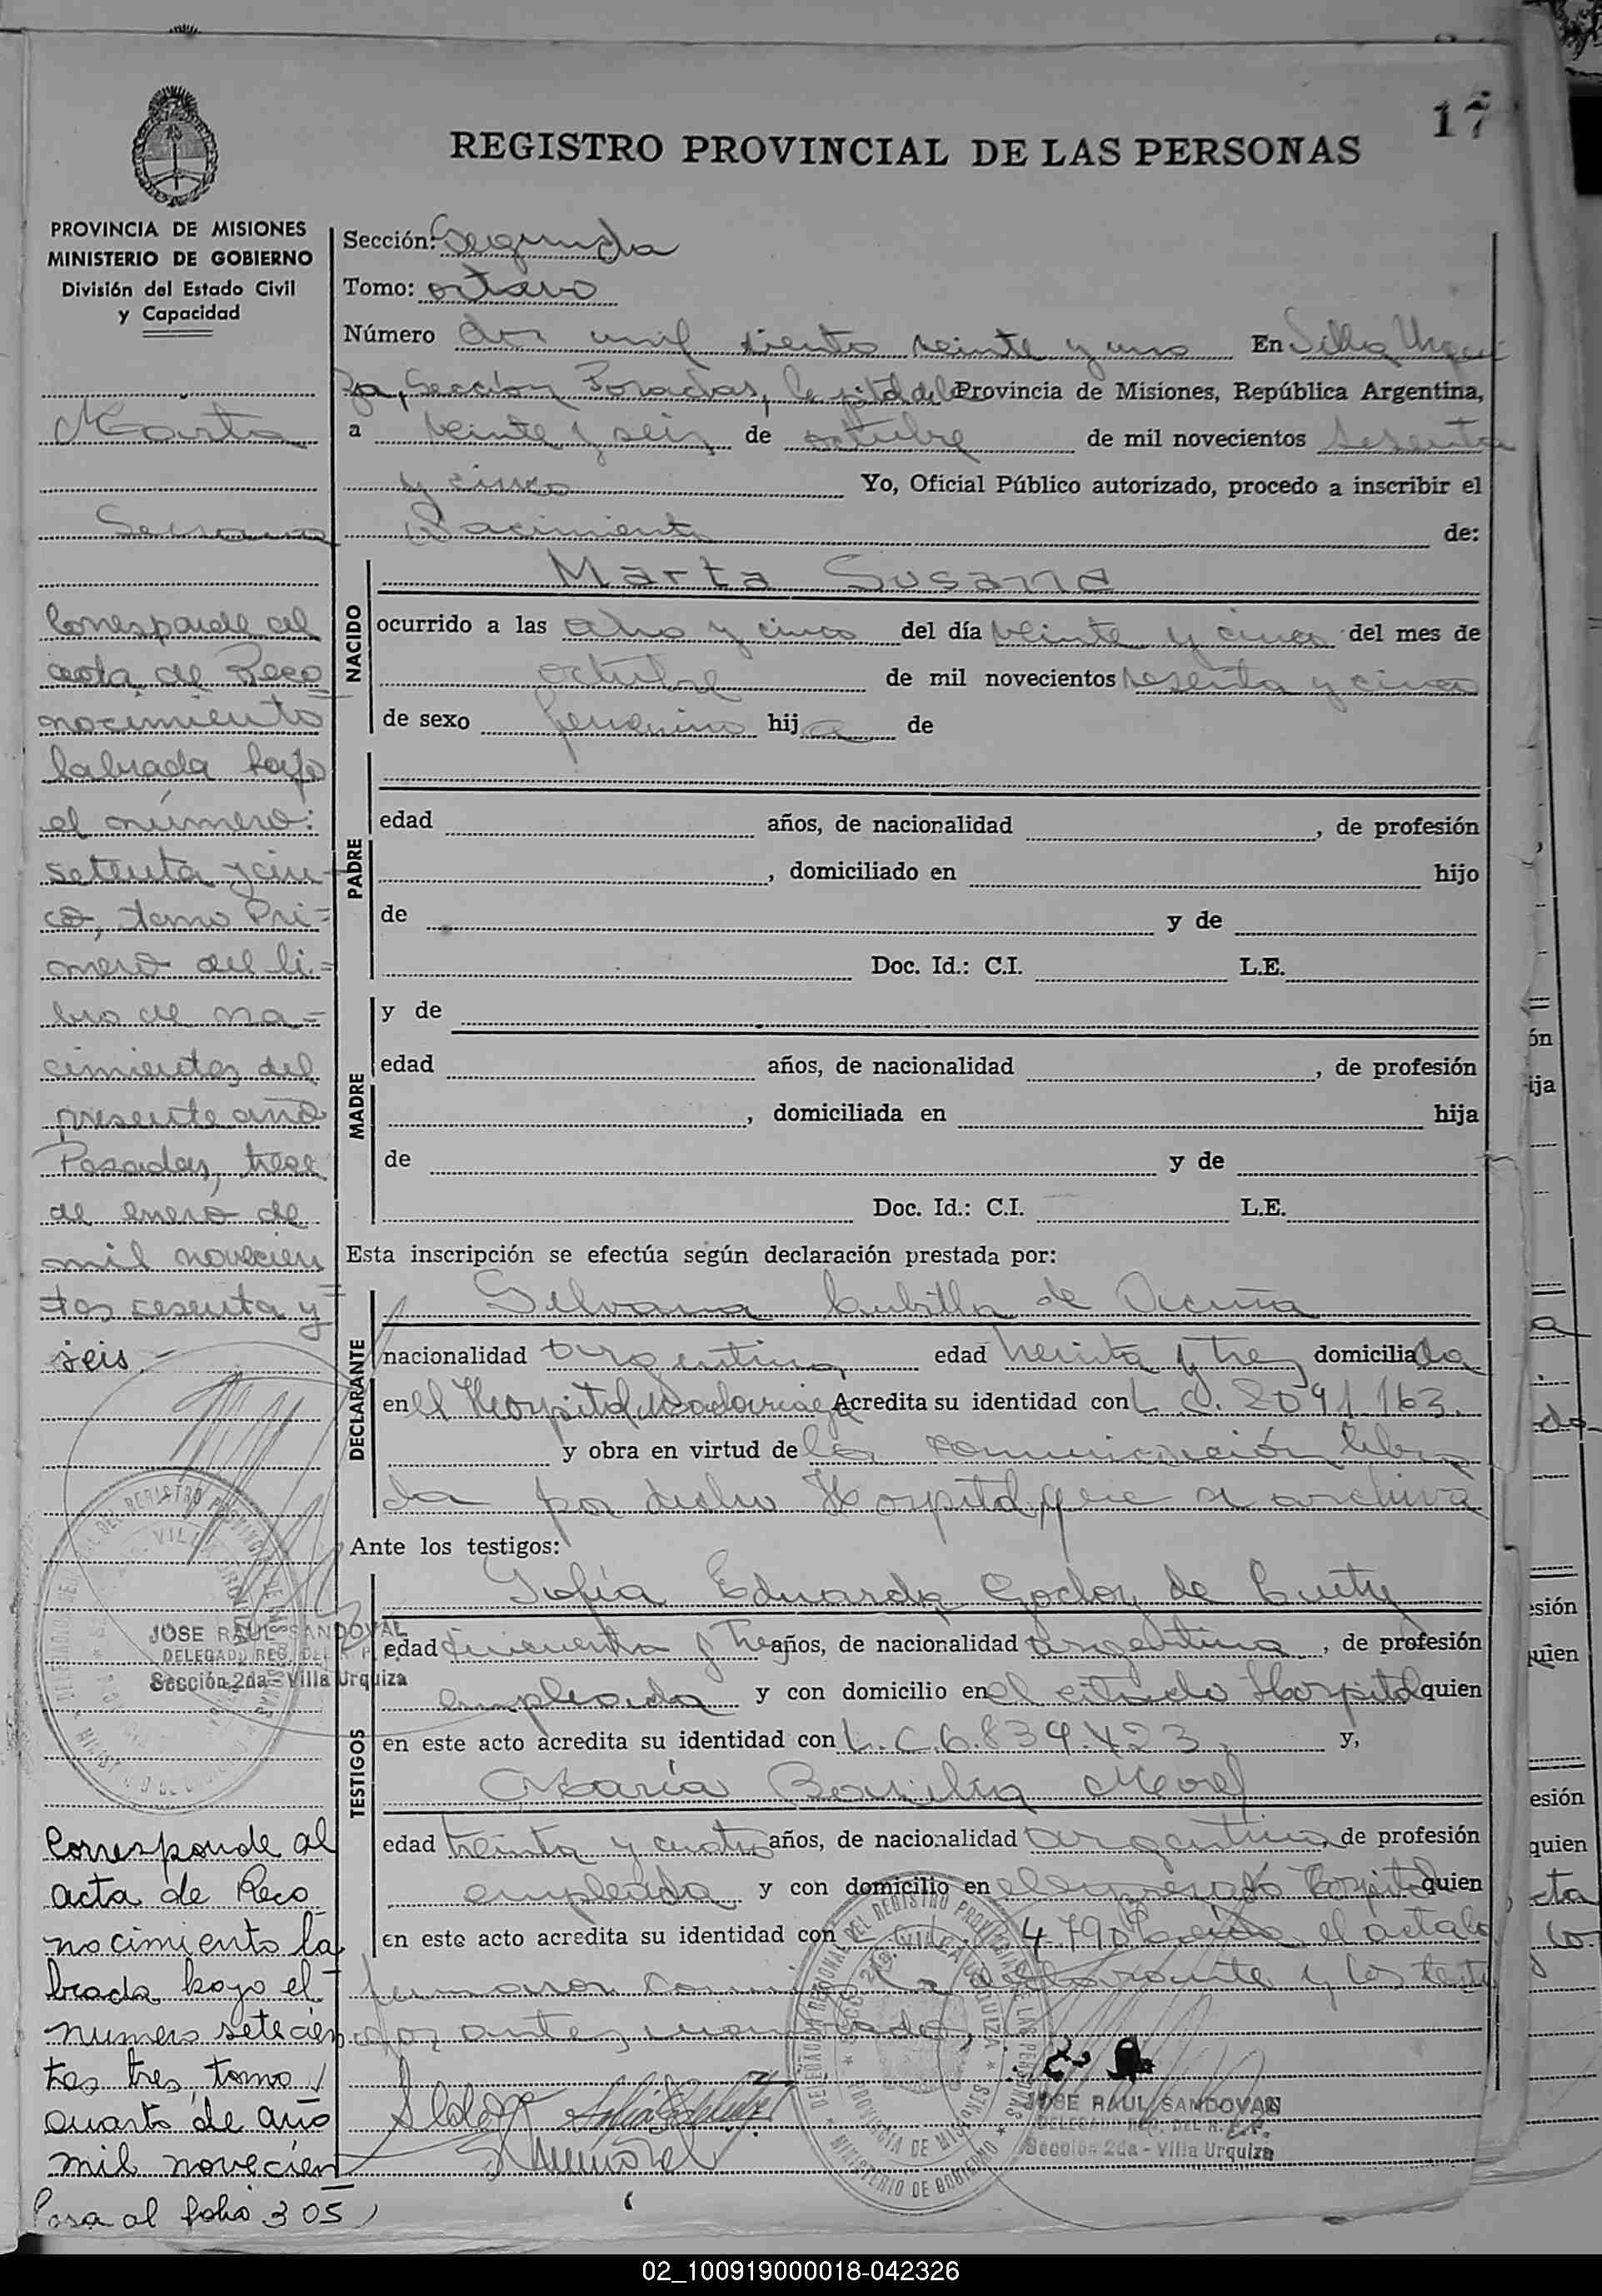 17
REGISTRO PROVINCIAL DE LAS PERSONAS
PROVINCIA DE MISIONES
MINISTERIO DE GOBIERNO
División del Estado Civil
y Capacidad
Marta
Susana
Corresponde al
acta de Reco
nocimiento
labrada bajo
el número:
setenta y cin-
co, tomo Pri=
mero del li=
bro de na=
cimientos del
presente año
Posadas, trece
de enero de
mil novecien
tos sesenta y
seis.-
JOSE RAUL SANDOVAL
DELEGADO REG. DEL R. P.
Sección 2da - Villa Urquiza
Corresponde al
acta de Reco
nocimiento la
brada bajo el
numero setecien
tos tres, tomo
cuarto de año
mil novecien
Pasa al folio 305
Sección: Segunda
Tomo: octavo
Número dos mil ciento veinte y uno En Villa Urqui
za, Sección Posadas, Capital de la Provincia de Misiones, República Argentina,
a veinte y seis de octubre de mil novecientos sesenta
y cinco Yo, Oficial Público autorizado, procedo a inscribir el
Nacimiento de:
NACIDO
Marta Susana
ocurrido a las ocho y cinco del día veinte y cinco del mes de
octubre de mil novecientos sesenta y cinco
de sexo femenino hija de
PADRE
edad años, de nacionalidad , de profesión
, domiciliado en hijo
de y de
Doc. Id.: C.I. L.E.
MADRE
y de
edad años, de nacionalidad , de profesión
, domiciliada en hija
de y de
Doc. Id.: C.I. L.E.
Esta inscripción se efectúa según declaración prestada por:
DECLARANTE
Silvana Cubilla de Acuña
nacionalidad argentina edad treinta y tres domiciliada
en el Hospital Madariaga Acredita su identidad con L. C. 2091163.
y obra en virtud de la comunicación libra
da por dicho Hospital que se archiva
Ante los testigos:
TESTIGOS
Sofía Eduarda Godoy de
edad cincuenta y tres años, de nacionalidad argentina, de profesión
empleada y con domicilio en el citado Hospital quien
en este acto acredita su identidad con L. C. 6.839.423, y,
María Morel
edad treinta y cuatro años, de nacionalidad argentina, de profesión
empleada y con domicilio en el expresado Hospital quien
en este acto acredita su identidad con el acta la
firmaron conmigo la declarante y los testi
gos antes
JOSE RAUL SANDOVAL
DELEGADO REG. DEL R. P. P.
Sección 2da - Villa Urquiza
02_100919000018-042326